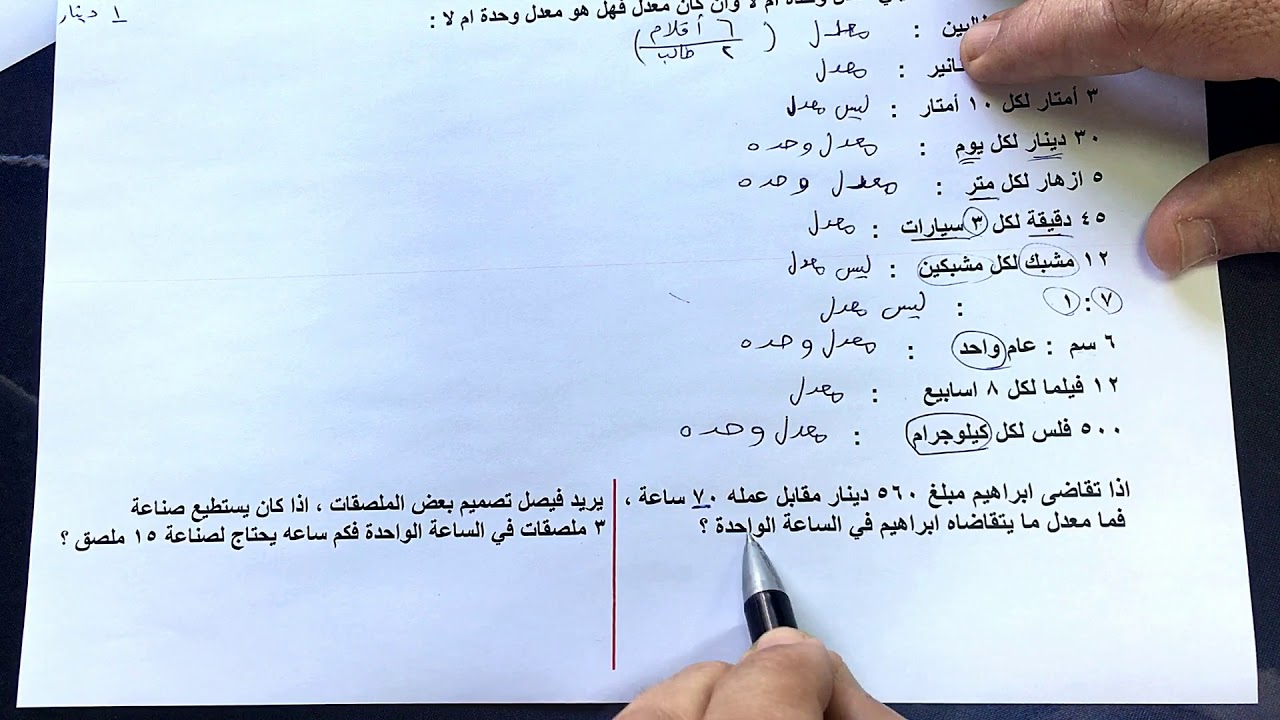 ١ دينار
وحدة ام لا وان كان معدل فهل هو معدل وحدة ام لا :
: معدل ( ٦ أقلام / ٢ طالب )
: معدل
٣ أمتار لكل ١٠ أمتار : ليس معدل
٣٠ دينار لكل يوم : معدل وحده
٥ ازهار لكل متر : معدل وحده
٤٥ دقيقة لكل ٣ سيارات : معدل
١٢ مشبك لكل مشبكين : ليس معدل
٧ : ١ : ليس معدل
٦ سم : عام واحد : معدل وحده
١٢ فيلما لكل ٨ اسابيع : معدل
٥٠٠ فلس لكل كيلوجرام : معدل وحده
اذا تقاضى ابراهيم مبلغ ٥٦٠ دينار مقابل عمله ٧٠ ساعة ،
فما معدل ما يتقاضاه ابراهيم في الساعة الواحدة ؟
يريد فيصل تصميم بعض الملصقات ، اذا كان يستطيع صناعة
٣ ملصقات في الساعة الواحدة فكم ساعه يحتاج لصناعة ١٥ ملصق ؟